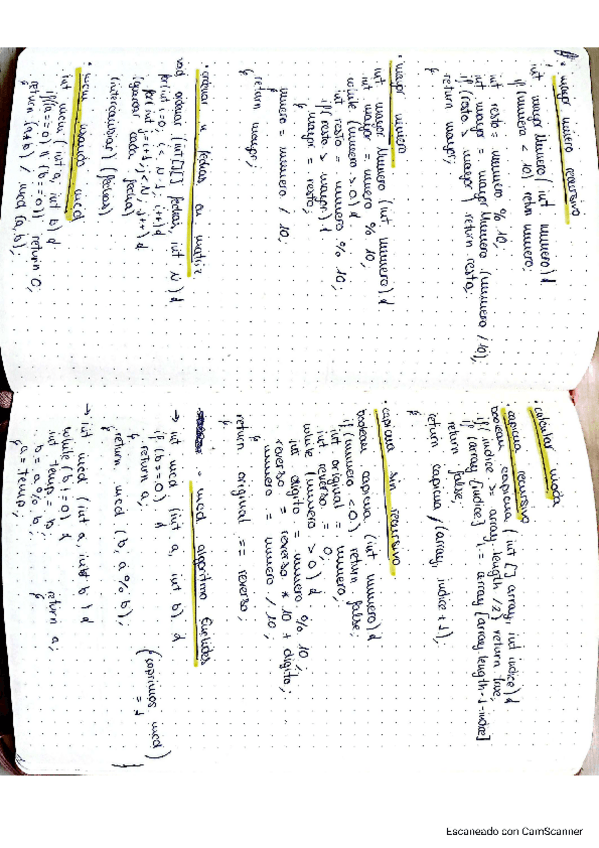 · mayor número recursivo
int mayor Numero (int numero) {
if (numero < 10) return numero;
int resto = numero % 10;
int mayor = mayor Numero (numero / 10);
if (resto > mayor) return resto;
return mayor;
}
· mayor número
int mayor Numero (int numero) {
int mayor = numero % 10;
while (numero > 0) {
int resto = numero % 10;
if (resto > mayor) {
mayor = resto;
}
numero = numero / 10;
}
return mayor;
}
· ordenar x fechas en matriz
void ordenar (int[][] fechas, int N) {
for (int i=0; i < N-1; i++) {
for (int j=i+1; j<N; j++) {
(comparar cada fecha)
(intercambiar) (fechas)
· mcm usando mcd
int mcm (int a, int b) {
if (a==0) || (b==0)) return 0;
return (a*b) / mcd (a,b);
}
· calcular moda
· capicua recursivo
boolean capicua (int [] array, int indice) {
if (indice >= array.length /2) return true;
if (array [indice] != array [array.length-1-indice]
return false;
return capicua (array, indice +1);
}
· capicua sin recursivo
boolean capicua (int numero) {
if (numero <0) return false;
int original = numero;
int reverso = 0;
while (numero > 0) {
int digito = numero % 10;
reverso = reverso * 10 + digito;
numero = numero / 10;
}
return original == reverso;
}
- mcd algoritmo Euclides
→ int mcd (int a, int b) {
if (b==0) {
return a;
}
return mcd (b, a%b);
}
(coprimos mcd = 1)
→ int mcd (int a, int b) {
while (b!=0) {
int temp = b;
b = a % b;
a = temp;
}
return a;
}
Escaneado con CamScanner